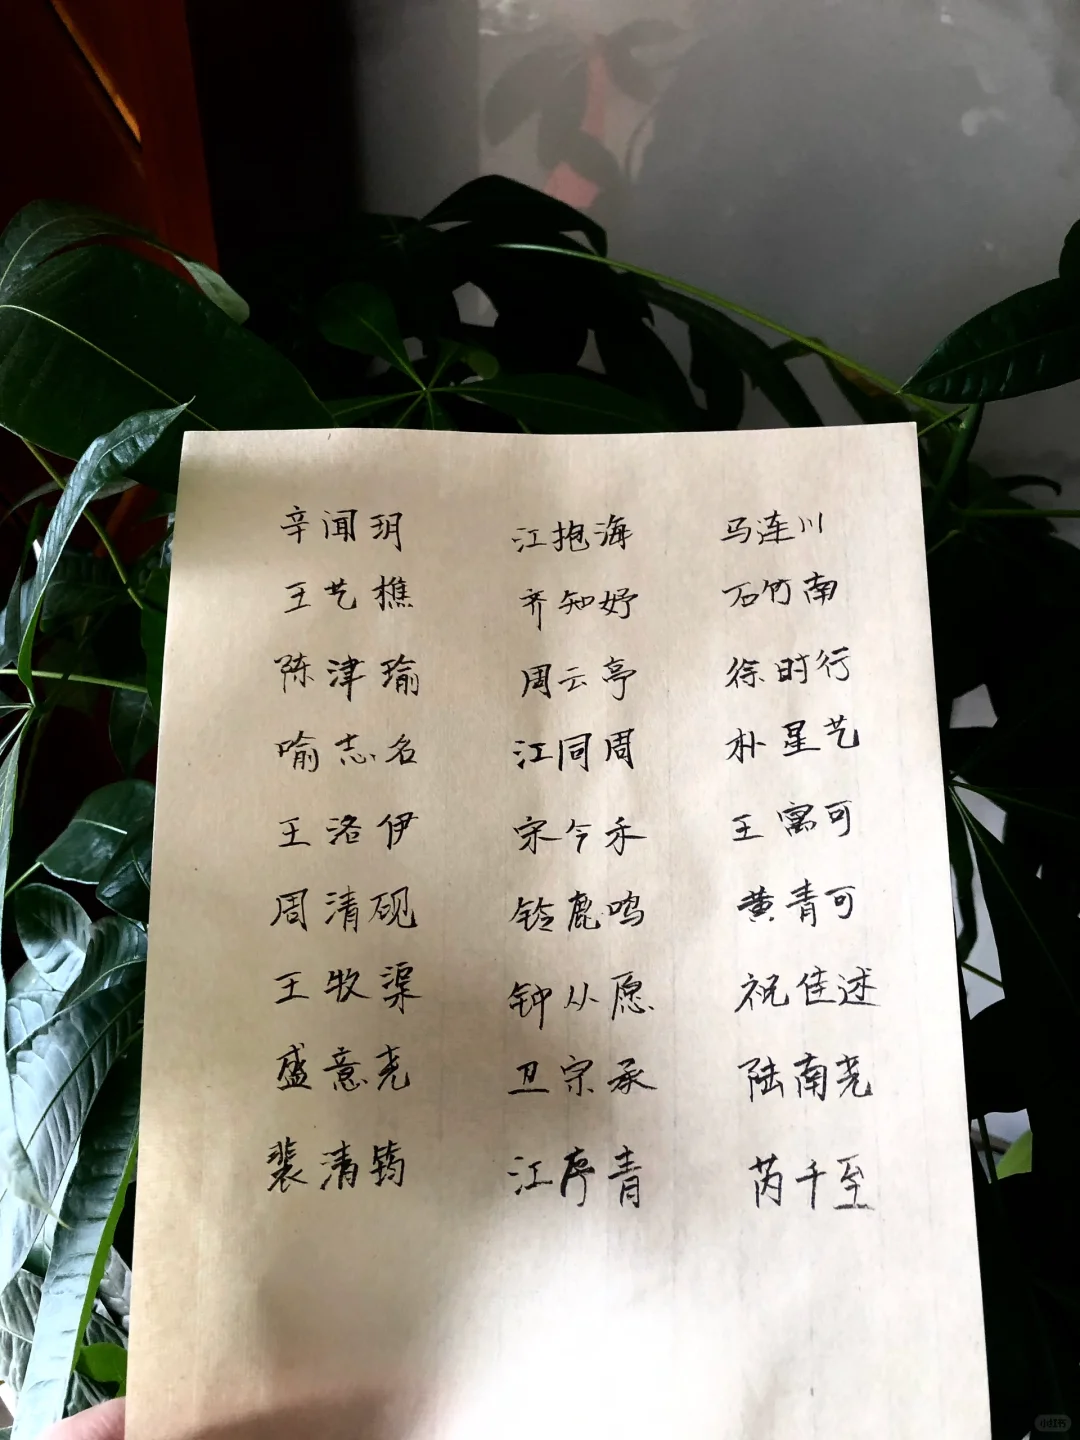 辛闻玥 江抱海 马连川
王艺樵 齐知妤 石竹南
陈津瑜 周云亭 徐时行
喻志名 江同周 朴星艺
王洛伊 宋今禾 王寓可
周清砚 铃鹿鸣 黄青可
王牧渠 钟从愿 祝佳述
盛意尧 卫宗承 陆南尧
裴清筠 江序青 芮千至
小红书